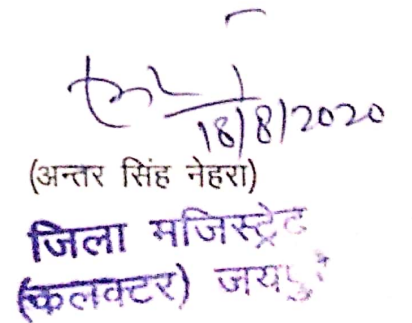 18/8/2020
(अन्तर सिंह नेहरा)
जिला मजिस्ट्रेट
(कलक्टर) जयपुर